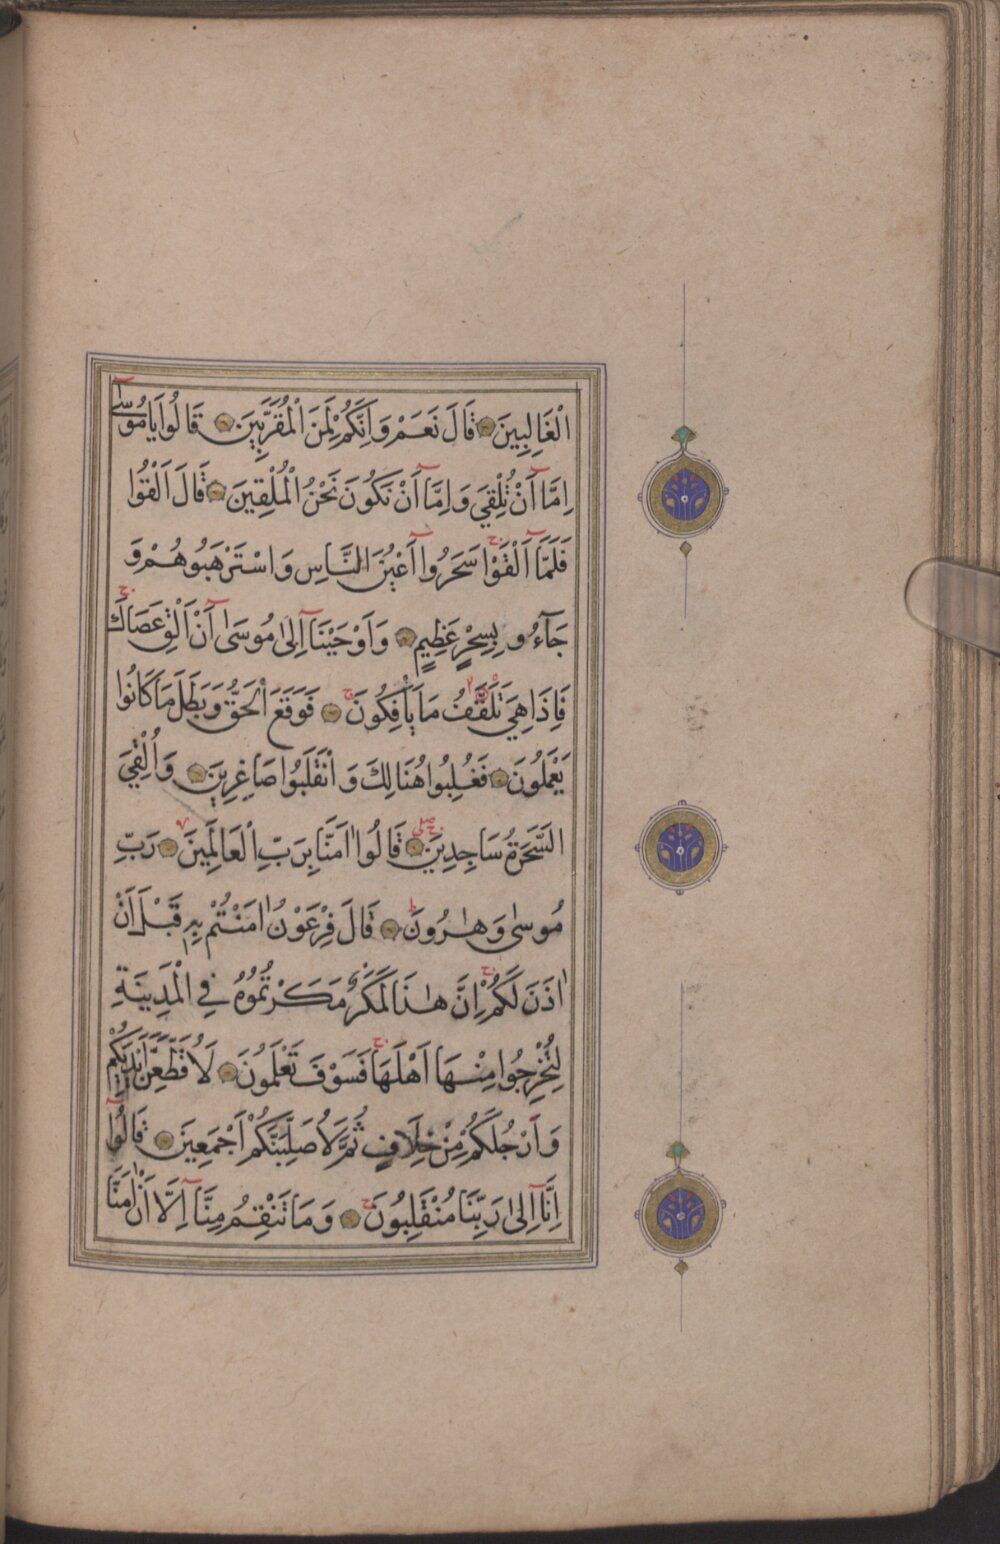 الْغَالِبِينَ قَالَ نَعَمْ وَاِنَّكُمْ لَمِنَ الْمُقَرَّبِينَ قَالُوا يَا مُوسٰى
اِمَّٓا اَنْ تُلْقِيَ وَاِمَّٓا اَنْ نَكُونَ نَحْنُ الْمُلْقِينَ قَالَ اَلْقُوا
فَلَمَّٓا اَلْقَوْا سَحَرُٓوا اَعْيُنَ النَّاسِ وَاسْتَرْهَبُوهُمْ وَ
جَٓاءُو بِسِحْرٍ عَظِيمٍ وَاَوْحَيْنَٓا اِلٰى مُوسٰٓى اَنْ اَلْقِ عَصَاكَ
فَاِذَا هِيَ تَلْقَفُ مَا يَأْفِكُونَ فَوَقَعَ الْحَقُّ وَبَطَلَ مَا كَانُوا
يَعْمَلُونَ فَغُلِبُوا هُنَالِكَ وَانْقَلَبُوا صَاغِرِينَ وَاُلْقِيَ
السَّحَرَةُ سَاجِدِينَ قَالُٓوا اٰمَنَّا بِرَبِّ الْعَالَمِينَ رَبِّ
مُوسٰى وَهٰرُونَ قَالَ فِرْعَوْنُ اٰمَنْتُمْ بِهٖ قَبْلَ اَنْ
اٰذَنَ لَكُمْ اِنَّ هٰذَا لَمَكْرٌ مَكَرْتُمُوهُ فِي الْمَدِينَةِ
لِتُخْرِجُوا مِنْهَٓا اَهْلَهَا فَسَوْفَ تَعْلَمُونَ لَاُقَطِّعَنَّ اَيْدِيَكُمْ
وَاَرْجُلَكُمْ مِنْ خِلَافٍ ثُمَّ لَاُصَلِّبَنَّكُمْ اَجْمَعِينَ قَالُٓوا
اِنَّٓا اِلٰى رَبِّنَا مُنْقَلِبُونَ وَمَا تَنْقِمُ مِنَّٓا اِلَّٓا اَنْ اٰمَنَّا